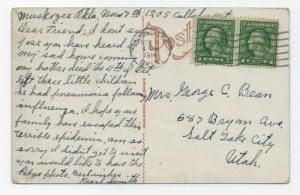 Muskogee Okla, Nov 7th 1205 Callahan st
Dear Friend: I don't sup-
ose you have heard of
my sad home coming
my brother died the 11th of Oct
left three little children
he had pneumonia follow
influenza. I hope your
family have escaped this
terrible epidemic. am so
sorry I didn't get to visit
you would like to have the
babys photo. Best wishes
Pearl Smith
Post
Mrs. George C. Bean
687 Bryan Ave
Salt Lake City
Utah.